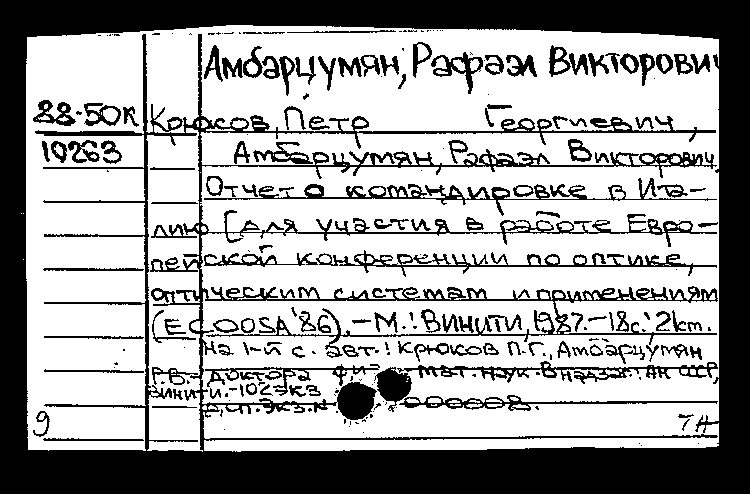 Амбарцумян, Рафаэл Викторович
88-50К Крюков, Петр Георгиевич,
10263 Амбарцумян, Рафаэл Викторович.
Отчет о командировке в Ита-
лию [для участия в работе Евро-
пейской конференции по оптике,
оптическим системам и применениям
(ECOOSA'86). - М.: ВИНИТИ, 1987. - 18с.; 21cm.
На 1-й с. авт.: Крюков П.Г., Амбарцумян
Р.В. - доктора физ мат. наук. В надзаг.: АН СССР,
ВИНИТИ. - 102экз
Д.ч.п. экз. № 000008.
9 ТН